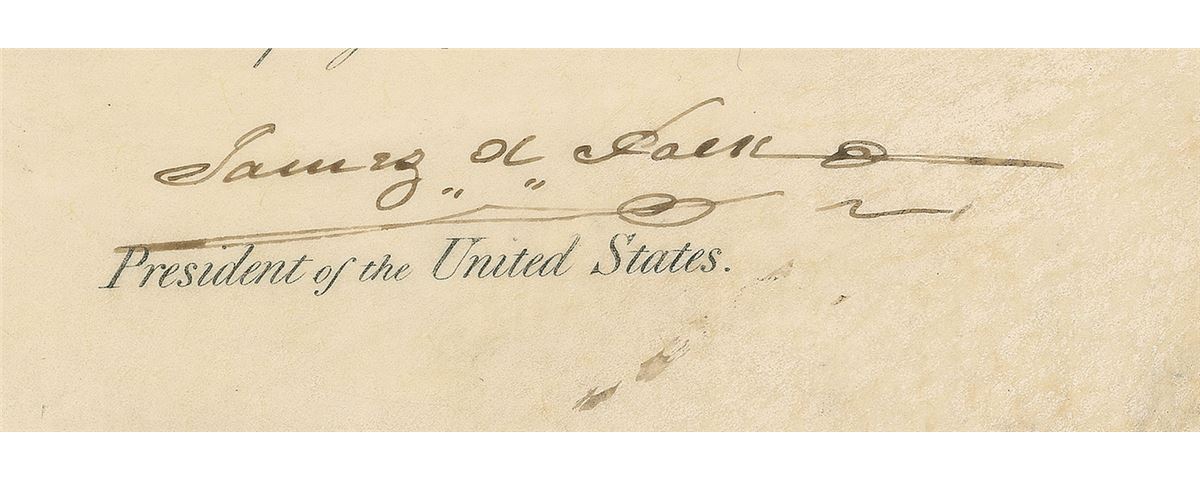 James K Polk
President of the United States.